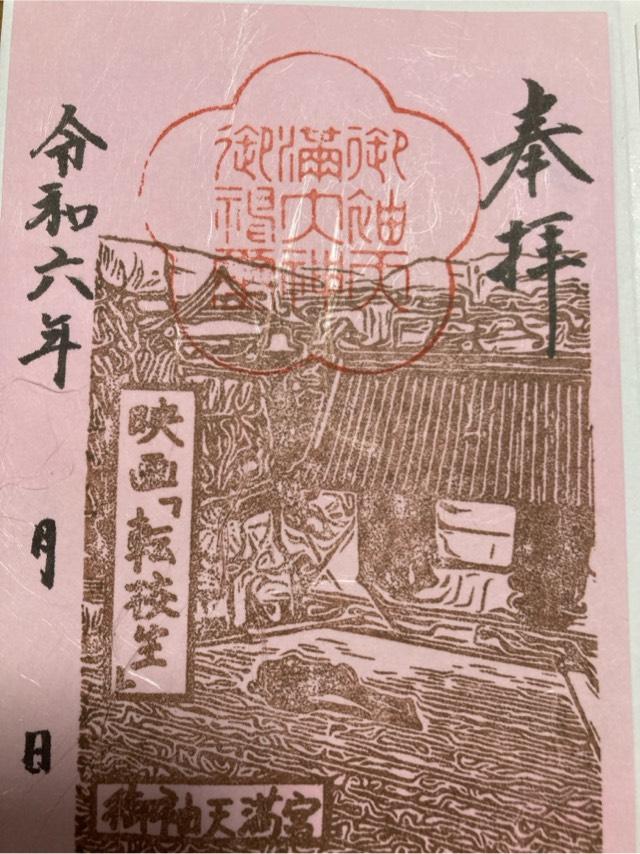 奉拝
御袖天
満大神
御
映画「転校生」
御袖天満宮
令和六年 月 日